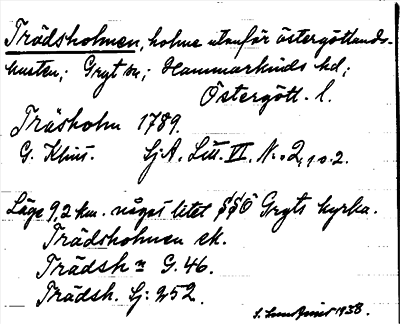 Trädsholmen, holme utanför östergötlands-
kusten; Gryt sn; Hammarkinds hd;
Östergötl. l.
Träsholm 1789.
G. Klint. SjA. Litt. VI. No 2, 1 o. 2.
Läge 9,2 km. något litet SSÖ Gryts kyrka.
Trädsholmen ek.
Trädsh n G. 46.
Trädsh. Sj: 252.
1938.